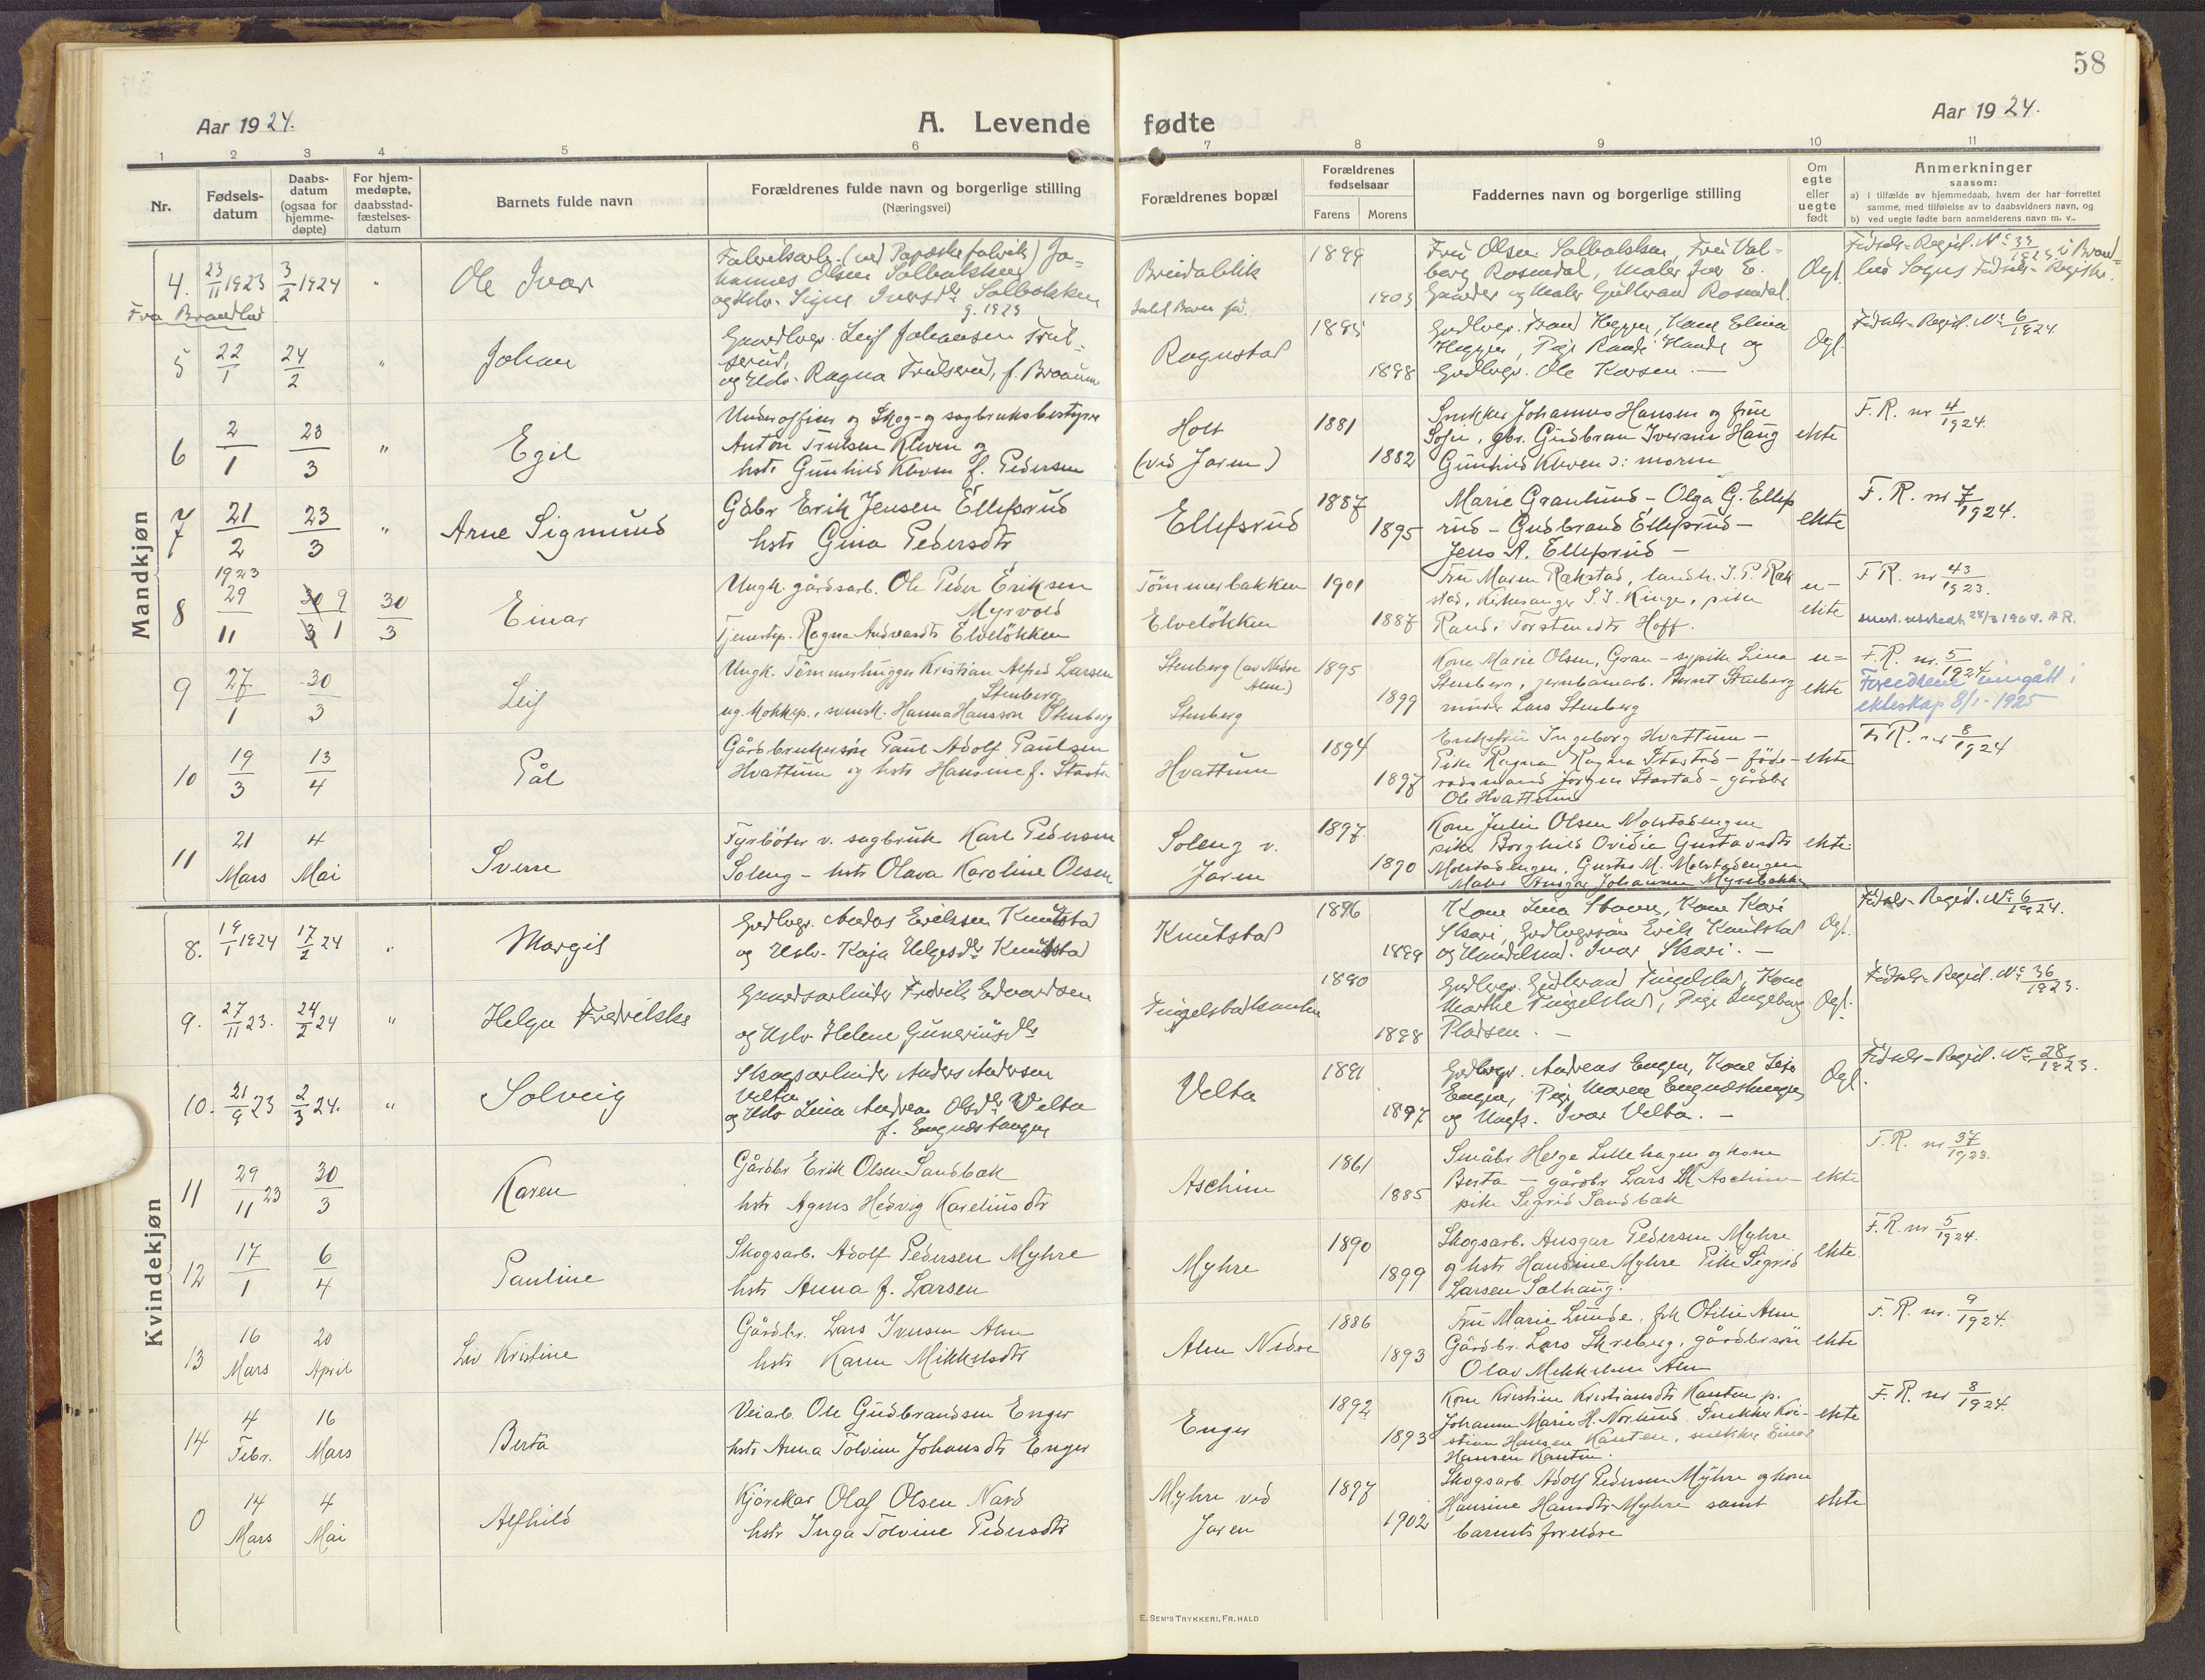 58
Aar 1924.
A. Levende fødte
Aar 1924.
1 2 3 4 5 6 7 8 9 10 11
Nr.
Fødsels-
datum
Daabs-
datum
(ogsaa for
hjemme-
døpte)
For hjem-
medøpte,
daabsstad-
fæstelses-
datum
Barnets fulde navn
Forældrenes fulde navn og borgerlige stilling
(Næringsvei)
Forældrenes bopæl
Forældrenes
fødselsaar
Farens Morens
Faddernes navn og borgerlige stilling
Om
egte
eller
uegte
født
Anmerkninger
saasom:
a) i tilfælde av hjemmedaab, hvem der har forrettet
samme, med tilføielse av to daabsvidners navn, og
b) ved uegte fødte barn anmelderens navn m. v..
Mandkjøn
4. 23/11 1923 3/2 1924 " Ole Ivar
Johannes Olsen Solbakken
og Hstr. Signe Iversdtr Solbakken
Breidablik
1899 1903
Ægt.
Fødsels-Regist. No 33/1923 i Brand-
bus Sogns Fødsels-Registr.
Fra Brandbu
5 22/1 24/2 " Johan
Gaardbgr. Leif Johansen Trul-
serud,
og Hstr. Ragna Trulserud, f. Braaum
Ragnstad
1895 1898
Grdbgr. Ole Karsen. —
Ægt.
Fødsels-Regist. No 6/1924.
6 2/1 23/3 " Egil
Underofficer og Skog- og sagbruksbestyrer
Anton Trulsen Kleven og
hstr Gunhild Kleven f. Pedersen
Holt
(ved Jaren)
1881 1882
Snekker Johannes Hansen og frue
Sofie, gbr. Gudbran Iversen Haug
Gunhild Kleven ɔ: moren
ekte
F.R. nr 4/1924.
7 21/2 23/3 " Arne Sigmund
Gdbr Erik Jensen Ellefsrud
hstr Gina Pedersdtr
Ellefsrud
1887 1895
Marie Granlund - Olga G. Ellefs
rud - Gudbrand Ellefsrud -
Jens A. Ellefsrud -
ekte
F.R. nr 7/1924.
8 1923 29/11 30/3 9/1 30/3 Einar
Ungk. gårdsarb. Ole Peder Eriksen
Myrvold
Tjenestep. Ragna Andreasdtr Elveløkken
Tømmerbakken
Elveløkken
1901 1887
Fru Maren Rækstad, landh. J. P. Ræk
stad, Kirkesanger S. J. Kinge, pike
Randi Torstensdtr Hoff.
u-
ekte
F.R. nr 43/1923.
9 27/1 30/3 Leif
Ungk. Tømmerhugger Kristian Alfred Larsen
Stenberg
ug. Kokkep., svensk. Hanna Hansson Stenberg
Stenberg (av Nedre
Alm)
Stenberg
1895 1899
Kone Marie Olsen, Gran - sypike Lina
Stenberg, jernbanearb. Bernt Stenberg
murer Lars Stenberg
u=
ekte
F.R. nr. 5/1924
Foreldrene inngått i
ekteskap 8/1-1925
10 19/3 13/4 Pål
Gårdbrukersøn Paul Adolf Paulsen
Hvattum og hstr Hansine f. Stastad
Hvattum
1894 1897
Enkefru Ingeborg Hvattum -
Pike Ragna Stastad - føde-
rådsmand Jørgen Stastad - gårdbr
Ole Hvattum
ekte
F.R. nr 8/1924
11 21 Mars 4 Mai Sverre
Fyrbøter v. sagbruk Karl Pedersen
Soleng - hstr Olava Karoline Olsen
Soleng v.
Jaren
1897 1890
Kone Julie Olsen Molstadengen
pike Borghild Ovidie Gustavsdtr
Molstadengen, Gustav M. Molstadengen
Maler Ansgar Johansen Myrebakken
ekte.
Kvindekjøn
8. 19/1 1924 17/2 24 " Margit
Grdbgr. Anders Eriksen Knutstad
og Hstr. Kaja Helgesdtr Knutstad
Knutstad
1896 1899
Kone Lina Staven, Kone Kari
Skari, Grdbgrsøn Erik Knutstad
og Handelsmd. Ivar Skari. -
Ægt.
Fødsels-Regist. No 6/1924.
9. 27/11 23. 24/2 24 " Helga Fredrikke
Gaardsarbeider Fredrik Edvardsen
og Hstr Helene Guneriusdtr
Tingelstadhaugen
1890 1898
Grdbgr. Gudbrand Tingelstad, Kone
Marthe Tingelstad, Pige Ingeborg
Pladsen. -
Ægt.
Fødsels-Regist. No 36/1923.
10. 21/9 23 2/3 24. " Solveig
Skogsarbeider Anders Andersen
Velta
og Hstr Lina Andrea Olsdtr Velta
f. Engnæstangen
Velta
1891 1897
Grdbgr. Andreas Engen, Kone
Engen, Pige Maren Engnæstangen
og Ungk. Ivar Velta. -
Ægt.
Fødsels-Regist. No 28/1923.
11 29/11 23 30/3 Karen
Gårdbr Erik Olsen Sandbak
hstr Agnes Hedvig Kareliusdtr
Aschim
1861 1885
Småbr Helge Lillehagen og kone
Berta - gårdbr Lars M Aschim
pike Sigrid Sandbak
ekte
F.R. nr 37/1923.
12 17/1 6/4 Pauline
Skogsarb. Adolf Pedersen Myhre
hstr Anna f. Larsen
Myhre
1890 1899
Skogsarb. Ansgar Pedersen Myhre
og hstr Hansine Myhre Pike Sigrid
Larsen Solhaug.
ekte.
F.R. nr 5/1924.
13 16 Mars 20 April Liv Kristine
Gårdbr. Lars Iversen Alm
hstr Karen Mikkelsdtr
Alm Nedre
1886 1893
Fru Marie Lunde, frk Otilie Alm
Gårdbr. Lars Skreberg, gårdbrsøn
Olav Mikkelsen Alm
ekte
F.R. nr. 9/1924.
14 4 Febr. 16 Mars Berta
Veiarb. Ole Gudbrandsen Enger
hstr Anna Tolvine Johansdtr Enger
Enger
1892 1893
Kone Kristine Kristiansdtr Kanten p.
Johanne Marie H. Norlund. Snekker Kri-
stian Hansen Kanten, snekker Einar
Hansen Kanten
ekte
F.R. nr 3/1924.
0 14 Mars 4 Mai Alfhild
Kjørekar Olaf Olsen Nard
hstr Inga Tolvine Pedersdtr
Myhre ved
Jaren
1897 1902
Skogsarb. Adolf Pedersen Myhre og kone
Hansine Hansdtr Myhre samt
barnets foreldre
ekte
E. SEM'S TRYKKERI, FR. HALD